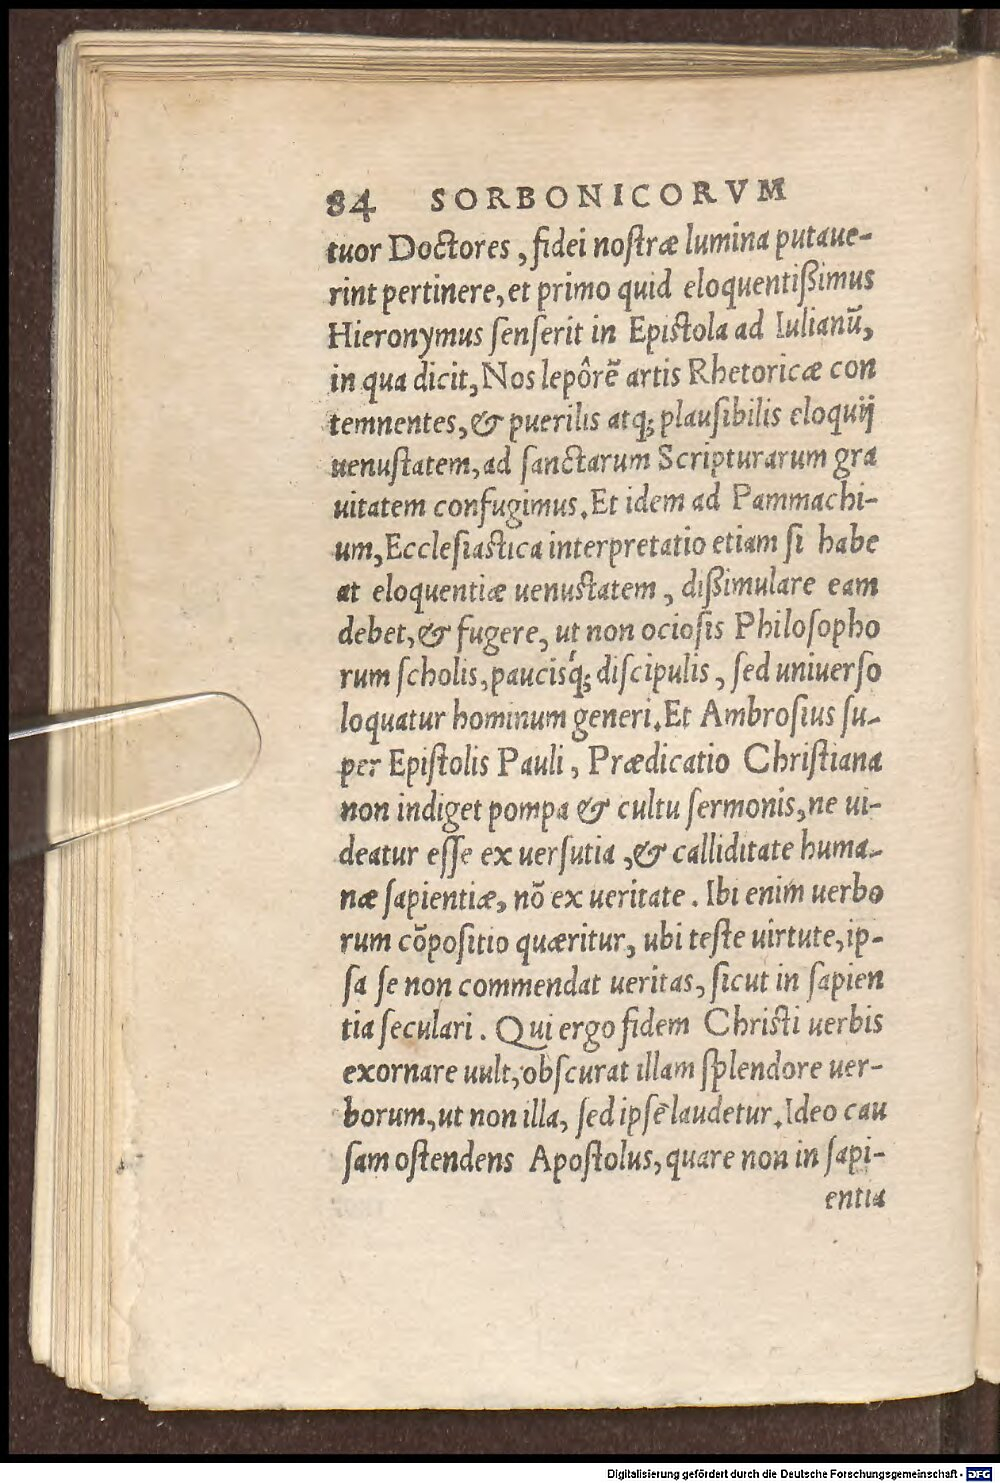 84 SORBONICORVM
tuor Doctores, fidei noſtræ lumina putaue-
rint pertinere, et primo quid eloquentißimus
Hieronymus ſenſerit in Epiſtola ad Iulianū,
in qua dicit, Nos lepôrē artis Rhetoricæ con
temnentes, & puerilis atq; plauſibilis eloquij
uenuſtatem, ad ſanctarum Scripturarum gra
uitatem confugimus. Et idem ad Pammachi-
um, Eccleſiaſtica interpretatio etiam ſi habe
at eloquentiæ uenuſtatem, dißimulare eam
debet, & fugere, ut non ocioſis Philoſopho
rum ſcholis, paucisq́; diſcipulis, ſed uniuerſo
loquatur hominum generi. Et Ambroſius ſu-
per Epiſtolis Pauli, Prædicatio Chriſtiana
non indiget pompa & cultu ſermonis, ne ui-
deatur eſſe ex uerſutia, & calliditate huma-
næ ſapientiæ, nō ex ueritate. Ibi enim uerbo
rum cōpoſitio quæritur, ubi teſte uirtute, ip-
ſa ſe non commendat ueritas, ſicut in ſapien
tia ſeculari. Qui ergo fidem Chriſti uerbis
exornare uult, obſcurat illam ſplendore uer-
borum, ut non illa, ſed ipſe laudetur. Ideo cau
ſam oſtendens Apoſtolus, quare non in ſapi-
entia
Digitalisierung gefördert durch die Deutsche Forschungsgemeinschaft - DFG